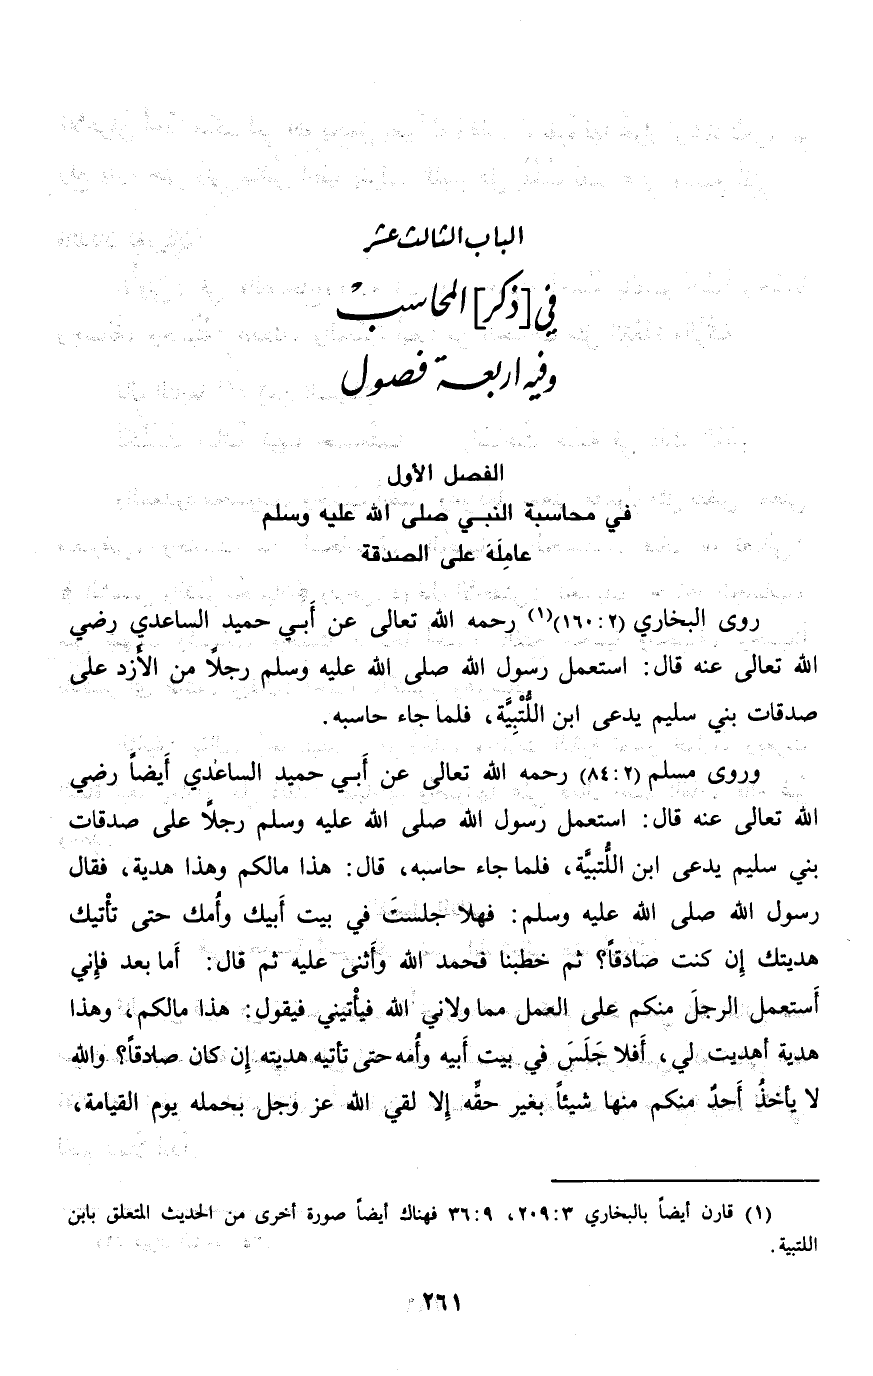 الباب الثالث عشر
في [ذكر] المحاسب
وفيه اربعة فصول
الفصل الأول
في محاسبة النبي صلى الله عليه وسلم
عامِلَه على الصدقة
روى البخاري (٢: ١٦٠)(١) رحمه الله تعالى عن أَبي حميد الساعدي رضي
الله تعالى عنه قال: استعمل رسول الله صلى الله عليه وسلم رجلاً من الأَزد على
صدقات بني سليم يدعى ابن اللُّتْبِيَّة، فلما جاء حاسبه.
وروى مسلم (٢: ٨٤) رحمه الله تعالى عن أَبي حميد الساعدي أَيضاً رضي
الله تعالى عنه قال: استعمل رسول الله صلى الله عليه وسلم رجلاً على صدقات
بني سليم يدعى ابن اللُّتبيَّة، فلما جاء حاسبه، قال: هذا مالكم وهذا هدية، فقال
رسول الله صلى الله عليه وسلم: فهلا جلستَ في بيت أَبيك وأُمك حتى تأْتيك
هديتك إِن كنت صادقاً؟ ثم خطبنا فحمد الله وأَثنى عليه ثم قال: أَما بعد فإِني
أَستعمل الرجلَ منكم على العمل مما ولاني الله فيأْتيني فيقول: هذا مالكم، وهذا
هدية أهديت لي، أَفلا جَلَسَ في بيت أَبيه وأُمه حتى تأتيه هديته إِن كان صادقاً؟ والله
لا يأخذُ أَحدٌ منكم منها شيئاً بغير حقِّه إِلا لقي الله عز وجل بحمله يوم القيامة،
(١) قارن أيضاً بالبخاري ٣: ٢٠٩، ٩: ٣٦ فهناك أيضاً صورة أخرى من الحديث المتعلق بابن
اللتبية.
٢٦١